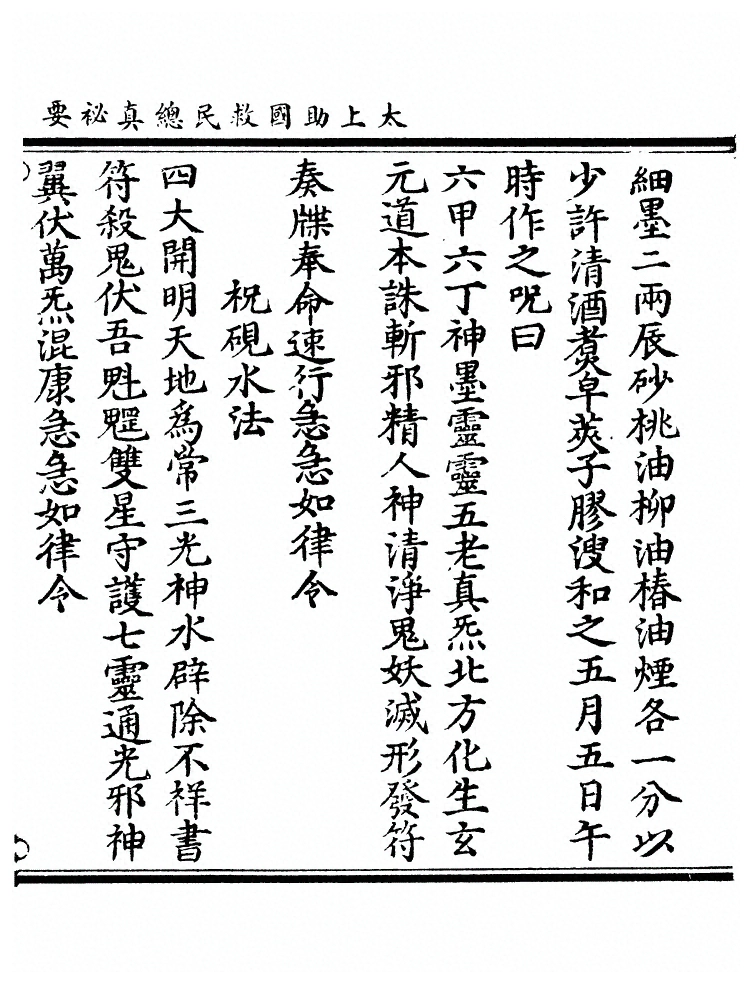 太上助國救民總真祕要
細墨二兩辰砂桃油柳油椿油煙各一分以
少許清酒煑皁莢子膠溲和之五月五日午
時作之呪曰
六甲六丁神墨靈靈五老真炁北方化生玄
元道本誅斬邪精人神清淨鬼妖滅形發符
奏牒奉命速行急急如律令
祝硯水法
四大開明天地爲常三光神水辟除不祥書
符殺鬼伏吾魁䰢雙星守護七靈通光邪神
翼伏萬炁混康急急如律令